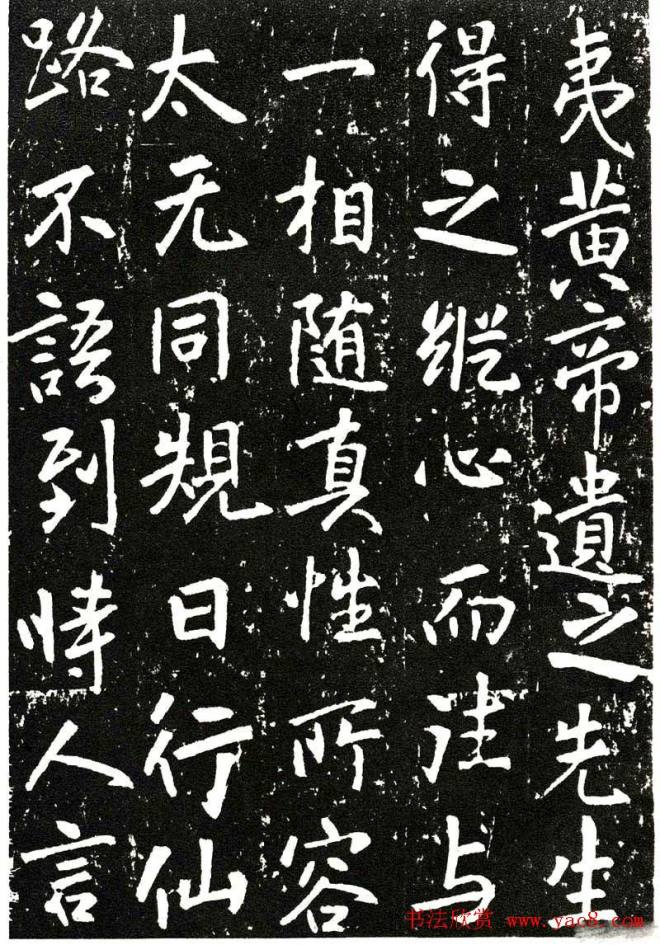 夷黄帝遺之先生
得之縦心而往与
一相随真性所容
太无同規日行仙
路不語到時人言
书法欣赏 www.yac8.com